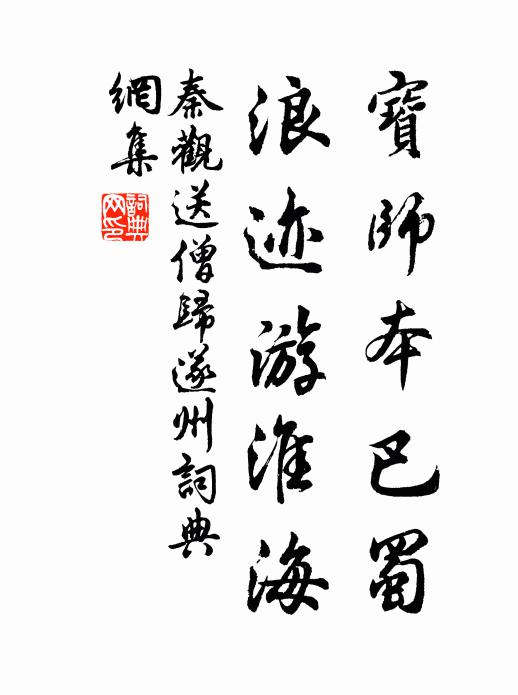 寶師本巴蜀
浪迹游淮海
秦觀送僧歸遂州詞典
網集
詞典
网印